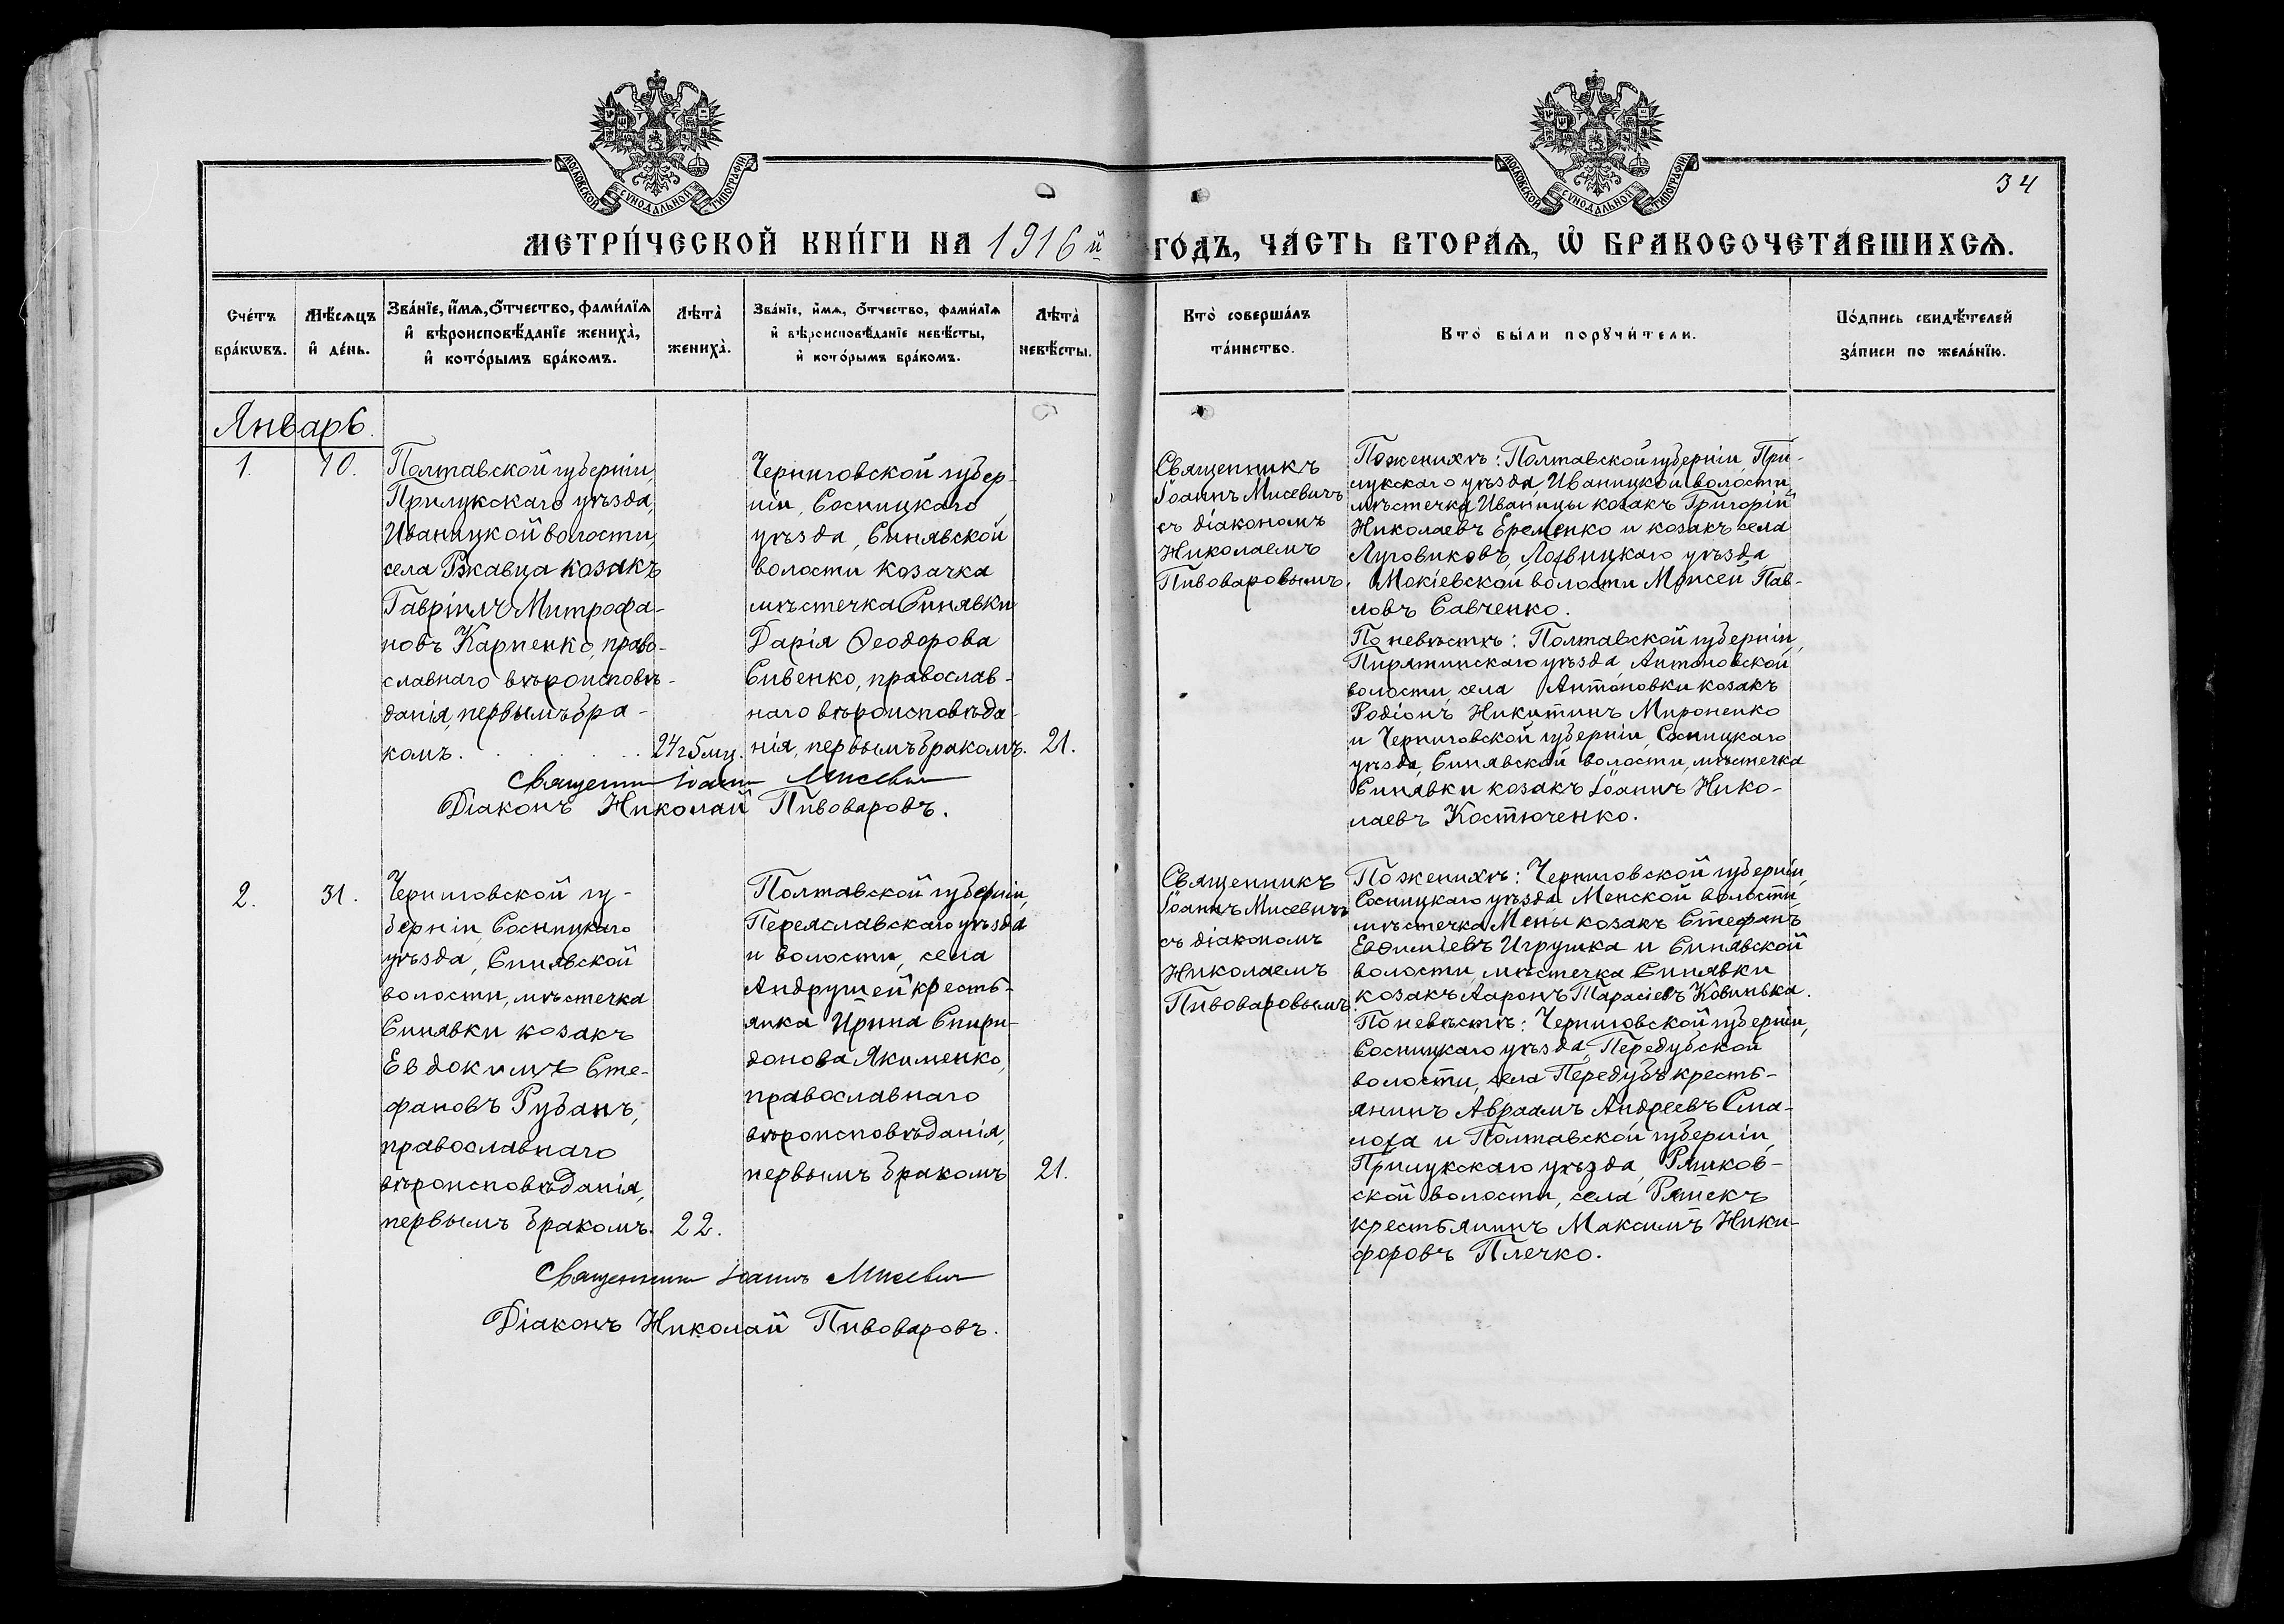 МОСКОВСКОЙ СУНОДАЛЬНОЙ ТИПОГРАФІИ
МОСКОВСКОЙ СУНОДАЛЬНОЙ ТИПОГРАФІИ
34
МЕТРИ́ЧЕСКОЙ КНИ́ГИ НА 1916 й
ГО́ДЪ, ЧА́СТЬ ВТОРА́Ѧ, Ѡ҆ БРАКОСОЧЕТА́ВШИХСѦ.
Сче́тъ бра́кѡвъ.
Мѣ́сѧцъ и҆ де́нь.
Зва́нїе, и҆́мѧ, ѻ҆́тчество, фами́лїѧ и҆ вѣроисповѣ́данїе жениха̀, и҆ кото́рымъ бра́комъ.
Лѣта̀ жениха̀.
Зва́нїе, и҆́мѧ, ѻ҆́тчество, фами́лїѧ и҆ вѣроисповѣ́данїе невѣ́сты, и҆ кото́рымъ бра́комъ.
Лѣта̀ невѣ́сты.
Кто̀ соверша́лъ та́инство.
Кто̀ бы́ли порꙋчи́тели.
По́дпись свидѣ́телей за́писи по жела́нїю.
Январь.
1.
10.
Полтавской губерніи,
Прилукскаго уѣзда,
Иваницкой волости,
села Ржавца козакъ
Гавріилъ Митрофа-
новъ Карпенко, право-
славнаго вѣроисповѣ-
данія, первымъ бра-
комъ.
24 г 5 мц.
Черниговской губер-
ніи, Сосницкаго
уѣзда, Синявской
волости козачка
мѣстечка Синявки
Дарія Ѳеодорова
Сивенко, православ-
наго вѣроисповѣда-
нія, первымъ бракомъ.
21.
Священникъ
Іоаннъ Мисевичъ
съ діакономъ
Николаемъ
Пивоваровымъ.
По женихѣ: Полтавской губерніи, При-
лукскаго уѣзда, Иваницкой волости,
мѣстечка Иваницы козакъ Григорій
Николаевъ Еременко и козакъ села
Луговиковъ, Лохвицкаго уѣзда,
Мокіевской волости Моисей Пав-
ловъ Савченко.
По невѣстѣ: Полтавской губерніи,
Пирятинскаго уѣзда, Антоновской
волости, села Антоновки козакъ
Родіонъ Никитинъ Мироненко
и Черниговской губерніи, Сосницкаго
уѣзда, Синявской волости, мѣстечка
Синявки козакъ Іоаннъ Нико-
лаевъ Костюченко.
Священникъ Іоаннъ Мисевичъ
Діаконъ Николай Пивоваровъ.
2.
31.
Черниговской гу-
берніи, Сосницкаго
уѣзда, Синявской
волости, мѣстечка
Синявки козакъ
Евдокимъ Сте-
фановъ Рубанъ,
православнаго
вѣроисповѣданія,
первымъ бракомъ.
22.
Полтавской губерніи,
Переяславскаго уѣзда
и волости, села
Андрушей кресть-
янка Ирина Спири-
донова Якименко,
православнаго
вѣроисповѣданія,
первымъ бракомъ
21.
Священникъ
Іоаннъ Мисевичъ
съ діакономъ
Николаемъ
Пивоваровымъ.
По женихѣ: Черниговской губерніи,
Сосницкаго уѣзда, Менской волости,
мѣстечка Мены козакъ Стефанъ
Евѳиміевъ Игрушка и Синявской
волости, мѣстечка Синявки
козакъ Ааронъ Тарасіевъ Ковинька.
По невѣстѣ: Черниговской губерніи,
Сосницкаго уѣзда, Передубской
волости, села Передубъ кресть-
янинъ Авраамъ Андреевъ
и Полтавской губерніи,
Прилукскаго уѣзда, Ряшков-
ской волости, села Ряшекъ
крестьянинъ Максимъ Ники-
форовъ Плечко.
Священникъ Іоаннъ Мисевичъ
Діаконъ Николай Пивоваровъ.